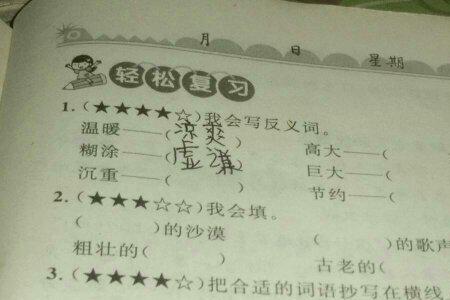 月 日 星期
轻松复习
1.(★★★★☆)我会写反义词。
温暖——(凉爽) 高大——(
糊涂——(虚谦) 巨大——(
沉重——( ) 节约——(
2.(★★★☆☆)我会填。
( )的沙漠 ( )的歌声
粗壮的( ) 古老的(
3.(★★★★☆)把合适的词语抄写在横线